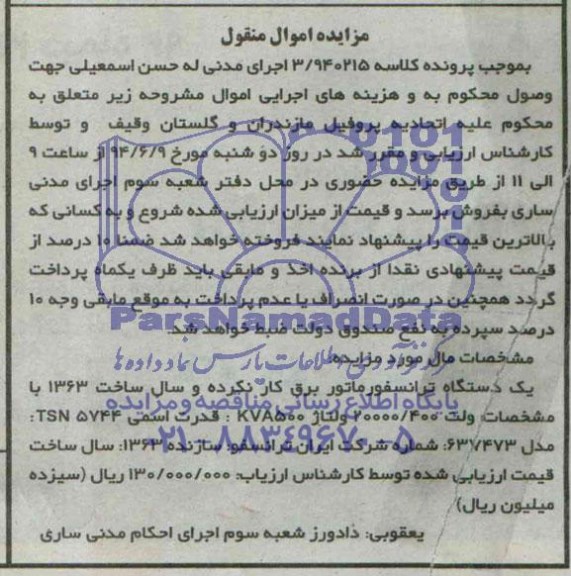 مزایده اموال منقول
بموجب پرونده کلاسه ۳/۹۴۰۲۱۵ اجرای مدنی له حسن اسمعیلی جهت
وصول محکوم به و هزینه های اجرایی اموال مشروحه زیر متعلق به
محکوم علیه اتحادیه پروفیل مازندران و گلستان وقیف و توسط
کارشناس ارزیابی و مقرر شد در روز دو شنبه مورخ ۹۴/۶/۹ از ساعت ۹
الی ۱۱ از طریق مزایده حضوری در محل دفتر شعبه سوم اجرای مدنی
ساری بفروش برسد و قیمت از میزان ارزیابی شده شروع و به کسانی که
بالاترین قیمت را پیشنهاد نمایند فروخته خواهد شد ضمنا ۱۰ درصد از
قیمت پیشنهادی نقدا از برنده اخذ و مابقی باید ظرف یکماه پرداخت
گردد همچنین در صورت انصراف یا عدم پرداخت به موقع مابقی وجه ۱۰
درصد سپرده به نفع صندوق دولت ضبط خواهد شد.
ParsNamadData
مشخصات مال مورد مزایده:
مرکز فرآوری اطلاعات پارس نماد داده ها
یک دستگاه ترانسفورماتور برق کار نکرده و سال ساخت ۱۳۶۳ با
پایگاه اطلاع رسانی مناقصه و مزایده
مشخصات: ولت ۲۰۰۰۰/۴۰۰ ولتاژ KVA۵۰۰ : قدرت اسمی TSN ۵۷۴۴:
۰۲۱-۸۸۳۴۹۶۷۰-۵
مدل ۶۳۷۴۷۳: شماره شرکت ایران ترانسفو: سازنده ۱۳۶۳: سال ساخت
قیمت ارزیابی شده توسط کارشناس ارزیاب: ۱۳۰/۰۰۰/۰۰۰ ریال (سیزده
میلیون ریال)
یعقوبی: دادورز شعبه سوم اجرای احکام مدنی ساری